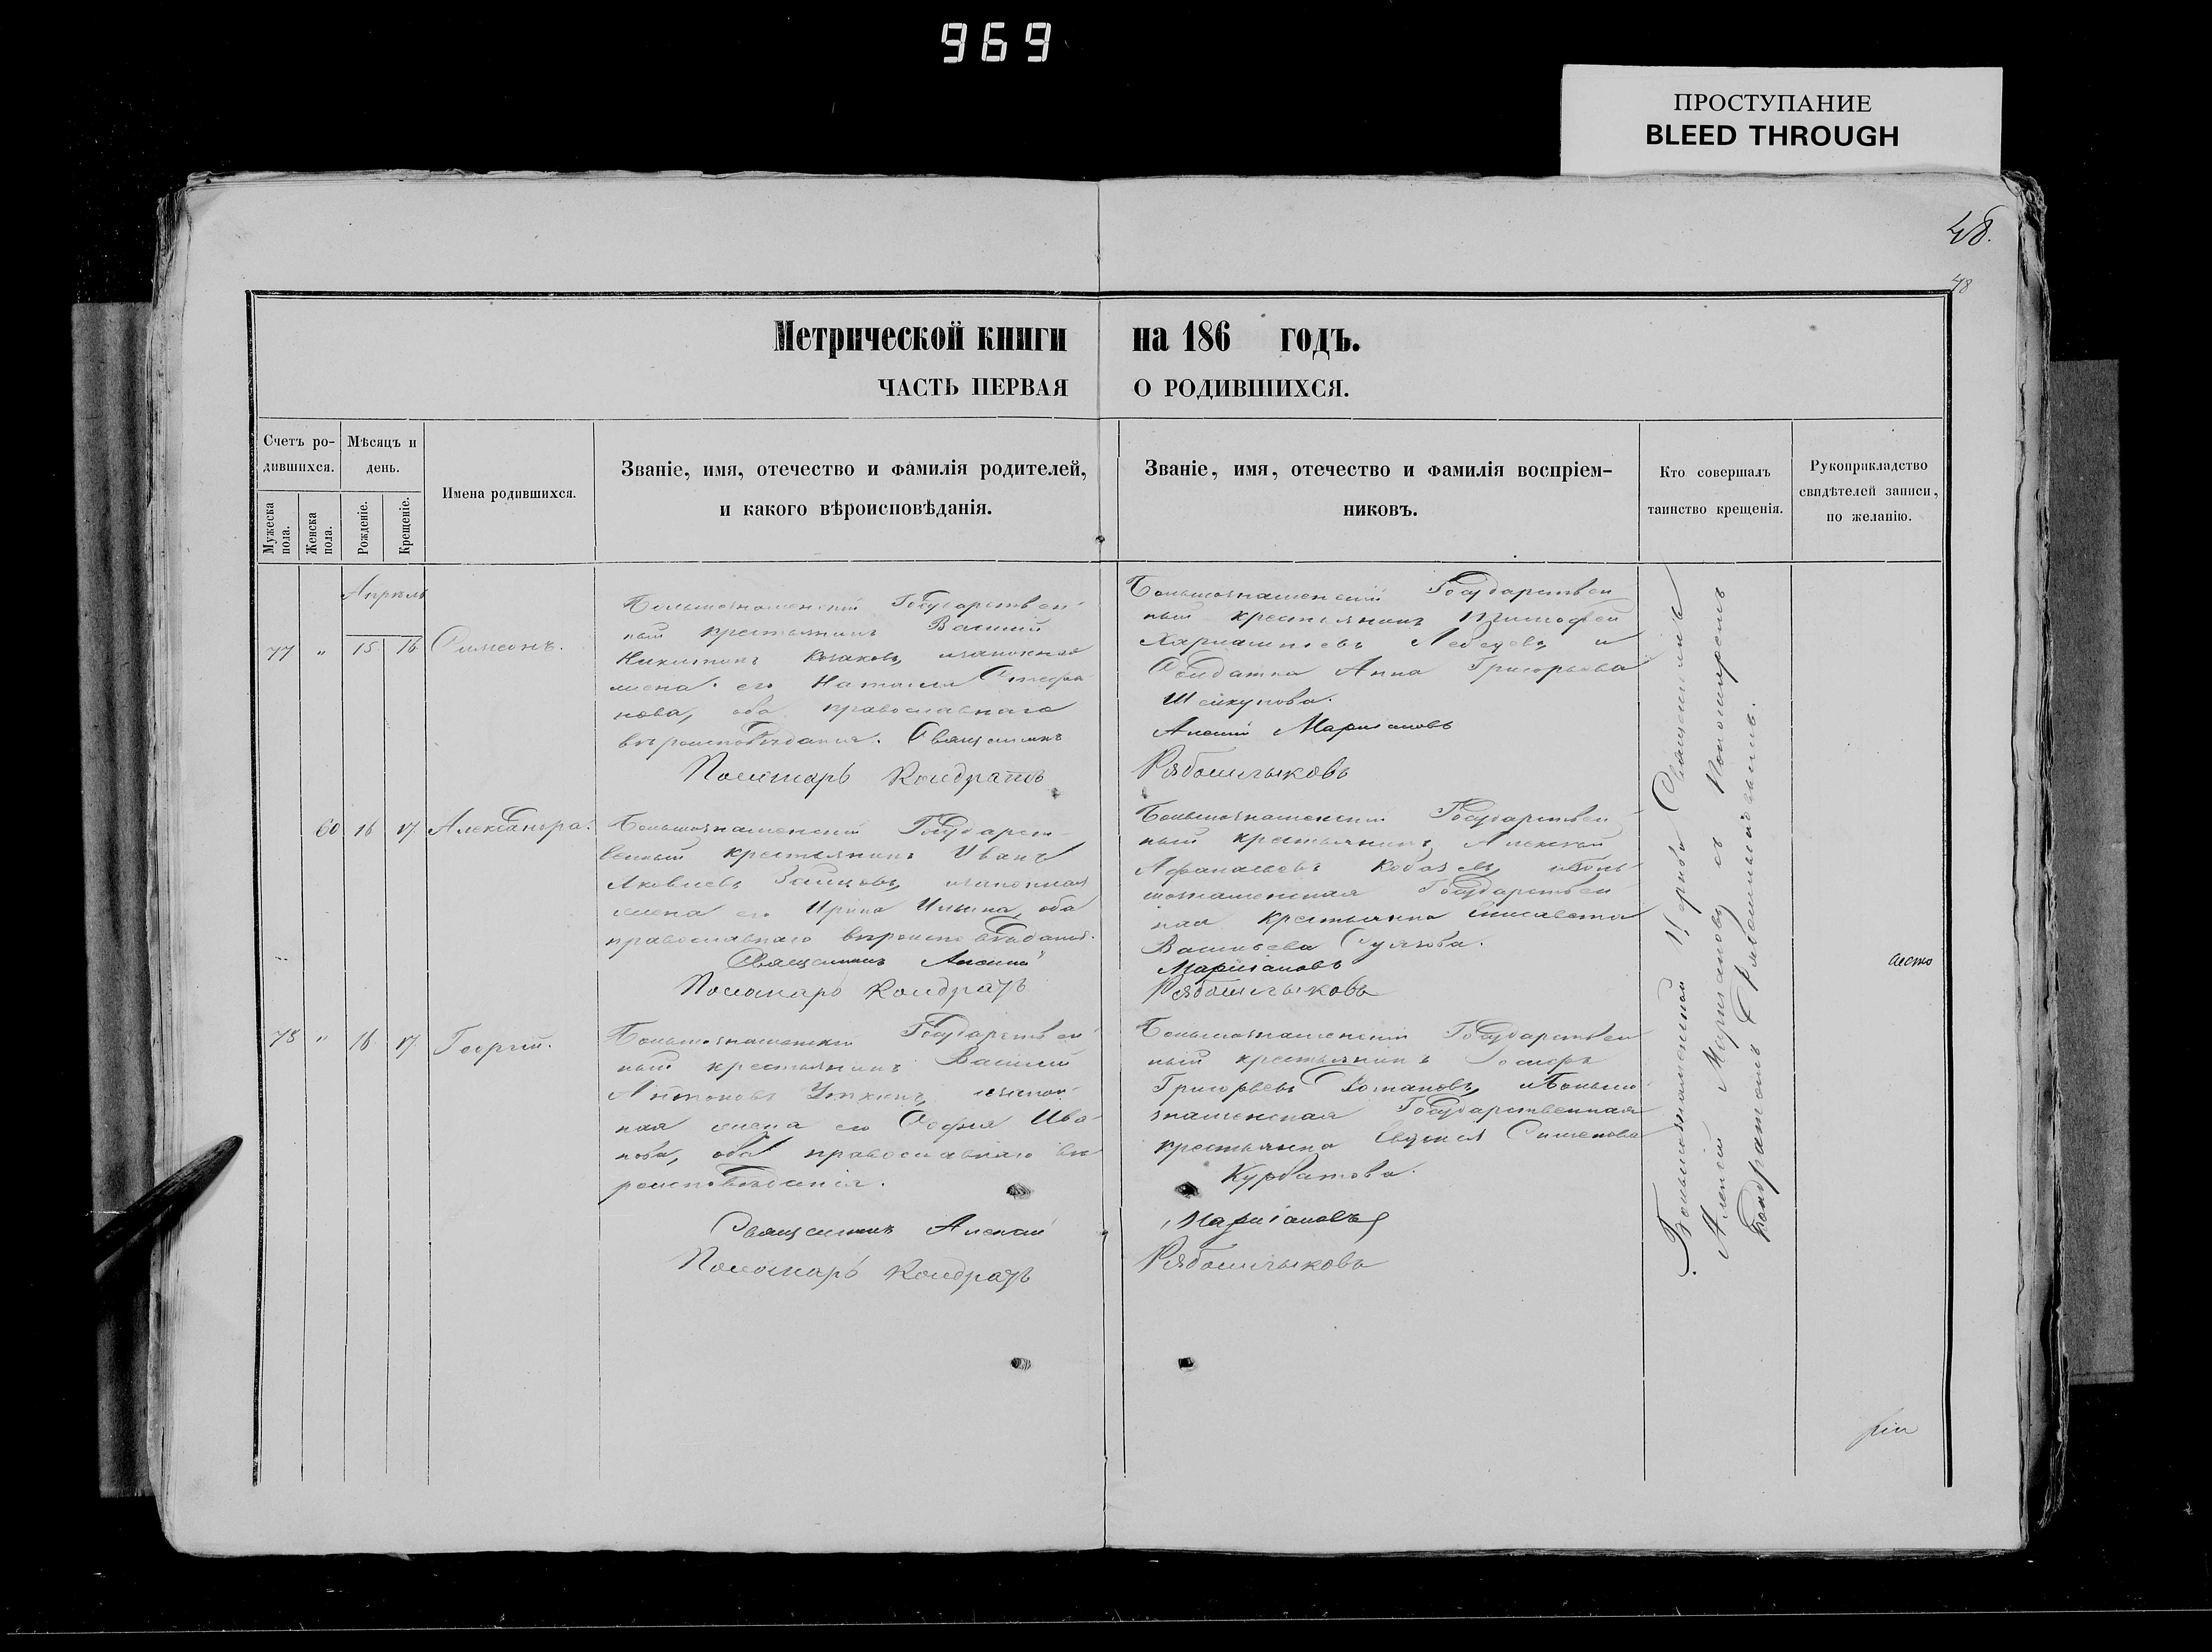 969
ПРОСТУПАНИЕ
BLEED THROUGH
48.
48
Метрической книги на 186 годъ.
ЧАСТЬ ПЕРВАЯ О РОДИВШИХСЯ.
Счетъ ро-
дившихся.
Мужеска
пола.
Женска
пола.
Мѣсяцъ и
день.
Рожденіе.
Крещеніе.
Имена родившихся.
Званіе, имя, отечество и фамилія родителей,
и какого вѣроисповѣданія.
Званіе, имя, отечество и фамилія воспріем-
никовъ.
Кто совершалъ
таинство крещенія.
Рукоприкладство
свидѣтелей записи,
по желанію.
Апрель
77 " 15 16 Симеонъ.
Большознаменскій Государствен-
ный крестьянинъ Василій
Никитинъ Козаковъ, законная
жена его Наталія Стефа-
нова, оба православнаго
вѣроисповѣданія. Священникъ
Пономарь Кондратъ
Большознаменскій Государствен
ный крестьянинъ Тимофей
Лебедевъ и
Солдатка Анна Григорьева
Шейкунова.
Алексій Маргіановъ
Рябошлыковъ
60 16 17 Александра.
Большознаменскій Государст-
венный крестьянинъ Иванъ
Яковлевъ Зайцовъ, законная
жена его Ирина Ильина, оба
православнаго вѣроисповѣданія.
Священникъ Алексій
Пономарь Кондратъ
Большознаменскій Государствен
ный крестьянинъ Алексѣй
Афанасьевъ и Боль
шознаменская Государствен
ная крестьянка Елисавета
Васильева
Маргіановъ
Рябошлыковъ
место
78 " 16 17 Георгій.
Большознаменскій Государствен
ный крестьянинъ Василій
Антоновъ закон
ная жена его Софія Ива-
нова, оба православнаго вѣ-
роисповѣданія.
Священникъ Алексій
Пономарь Кондратъ
Большознаменскій Государствен
ный крестьянинъ
Григорьевъ и Большо
знаменская Государственная
крестьянка Евдокія Симеонова
Курбатова.
Маргіановъ
Рябошлыковъ
Большознаменской Церкви Священникъ
Алексій Маргіановъ съ Пономаремъ
Кондратомъ Рябошлыковымъ.